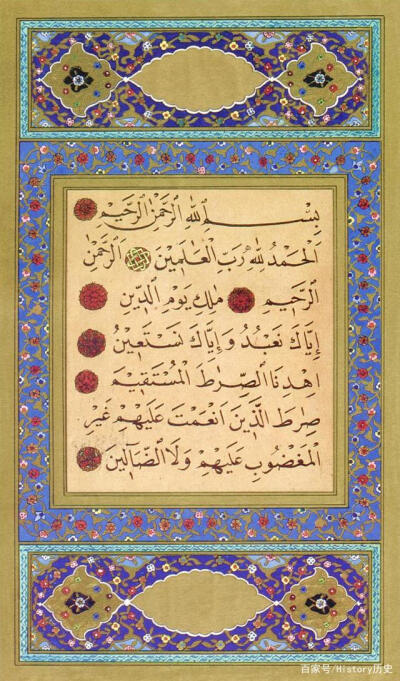 بِسْمِ اللّٰهِ الرَّحْمٰنِ الرَّحٖيمِ
اَلْحَمْدُ لِلّٰهِ رَبِّ الْعَالَمٖينَ اَلرَّحْمٰنِ
الرَّحٖيمِ مَالِكِ يَوْمِ الدّٖينِ
اِيَّاكَ نَعْبُدُ وَاِيَّاكَ نَسْتَعٖينُ
اِهْدِنَا الصِّرَاطَ الْمُسْتَقٖيمَ
صِرَاطَ الَّذٖينَ اَنْعَمْتَ عَلَيْهِمْ غَيْرِ
الْمَغْضُوبِ عَلَيْهِمْ وَلَا الضَّٓالّٖينَ
百家号/History历史